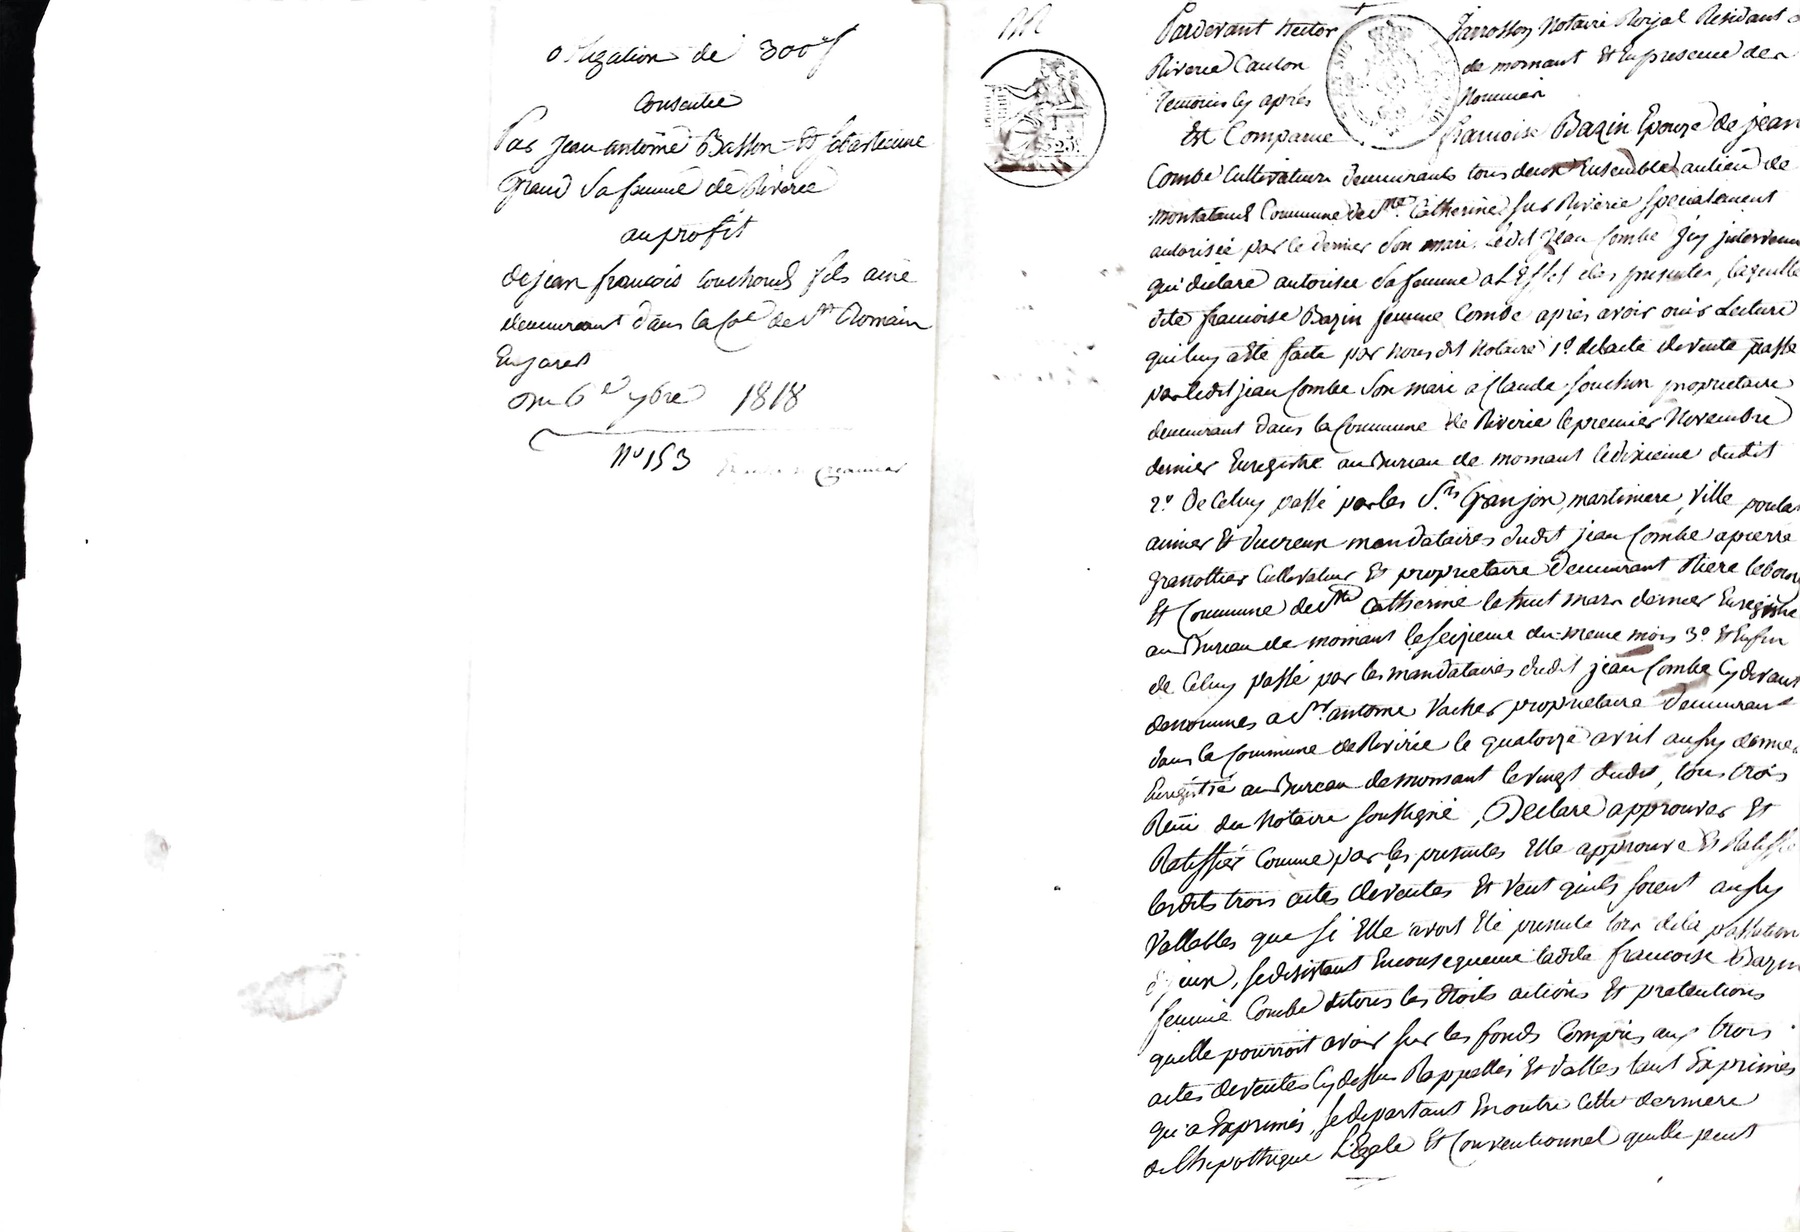 obligation de 300f
Consentie
Par Jean antoine Basson Et
Grand Sa femme de Riverie
au profit
de jean francois couchoud fils ainé
demeurant dans la Cne de St Romain
En jarest
Du 6e 7bre 1818
No 153
Pardevant hector Jarrosson Notaire Royal Residant a
Riverie Canton de mornant Et En presence des
temoins cy après Nommés
Est Comparue francoise Bazin Epouze de jean
Combe Cultivateurs demeurants tous deux Ensemble au lieu de
montataud Commune de Ste Catherine sur Riverie specialement
autorisée par le dernier Son mari, ledit jean Combe Icy intervenu
qui déclare autoriser Sa femme a L'Effet des presentes, laquelle
dite francoise Bazin femme Combe après avoir ouis Lecture
qui luy a Eté faite par nous dit Notaire 1o de l'acte de vente passé
par ledit jean Combe Son mari a Claude souchon proprietaire
demeurant dans la Commune de Riverie le premier Novembre
dernier Enregistré au Bureau de mornant le dixieme dudit
2o De Celuy passé par les Srs Granjon, martiniere, Ville
Et ducreux mandataires dudit jean Combe a pierre
granottier Cultivateur Et proprietaire Demeurant
Et Commune de Ste Catherine le huit mars dernier Enregistré
au Bureau de mornant le seizieme du meme mois 3o Et Enfin
de Celuy passé par les mandataires dudit jean Combe Cy devant
denommés a Sr antoine Vacher proprietaire demeurant
dans la Commune de Riverie le quatorze avril aussy dernier
Enregistré au Bureau de mornant le vingt dudit, tous trois
Reçu du Notaire soussigné, Declare approuver Et
Ratiffier Comme par les presentes Elle approuve Et Ratiffie
lesdits trois actes de ventes Et veut qu'ils soient aussy
Vallables que si Elle avoit Eté presente lors de la passation
d'jceux, se desistant En consequence ladite francoise Bazin
femme Combe de tous les droits actions Et pretentions
quelle pourroit avoir sur les fonds Compris aux trois
actes de ventes Cy dessus Rappellés Et dattes tant Exprimés
qu'a Exprimés, se departant En outre Cette derniere
de Lhipothique Légale Et Conventionnel quelle peut